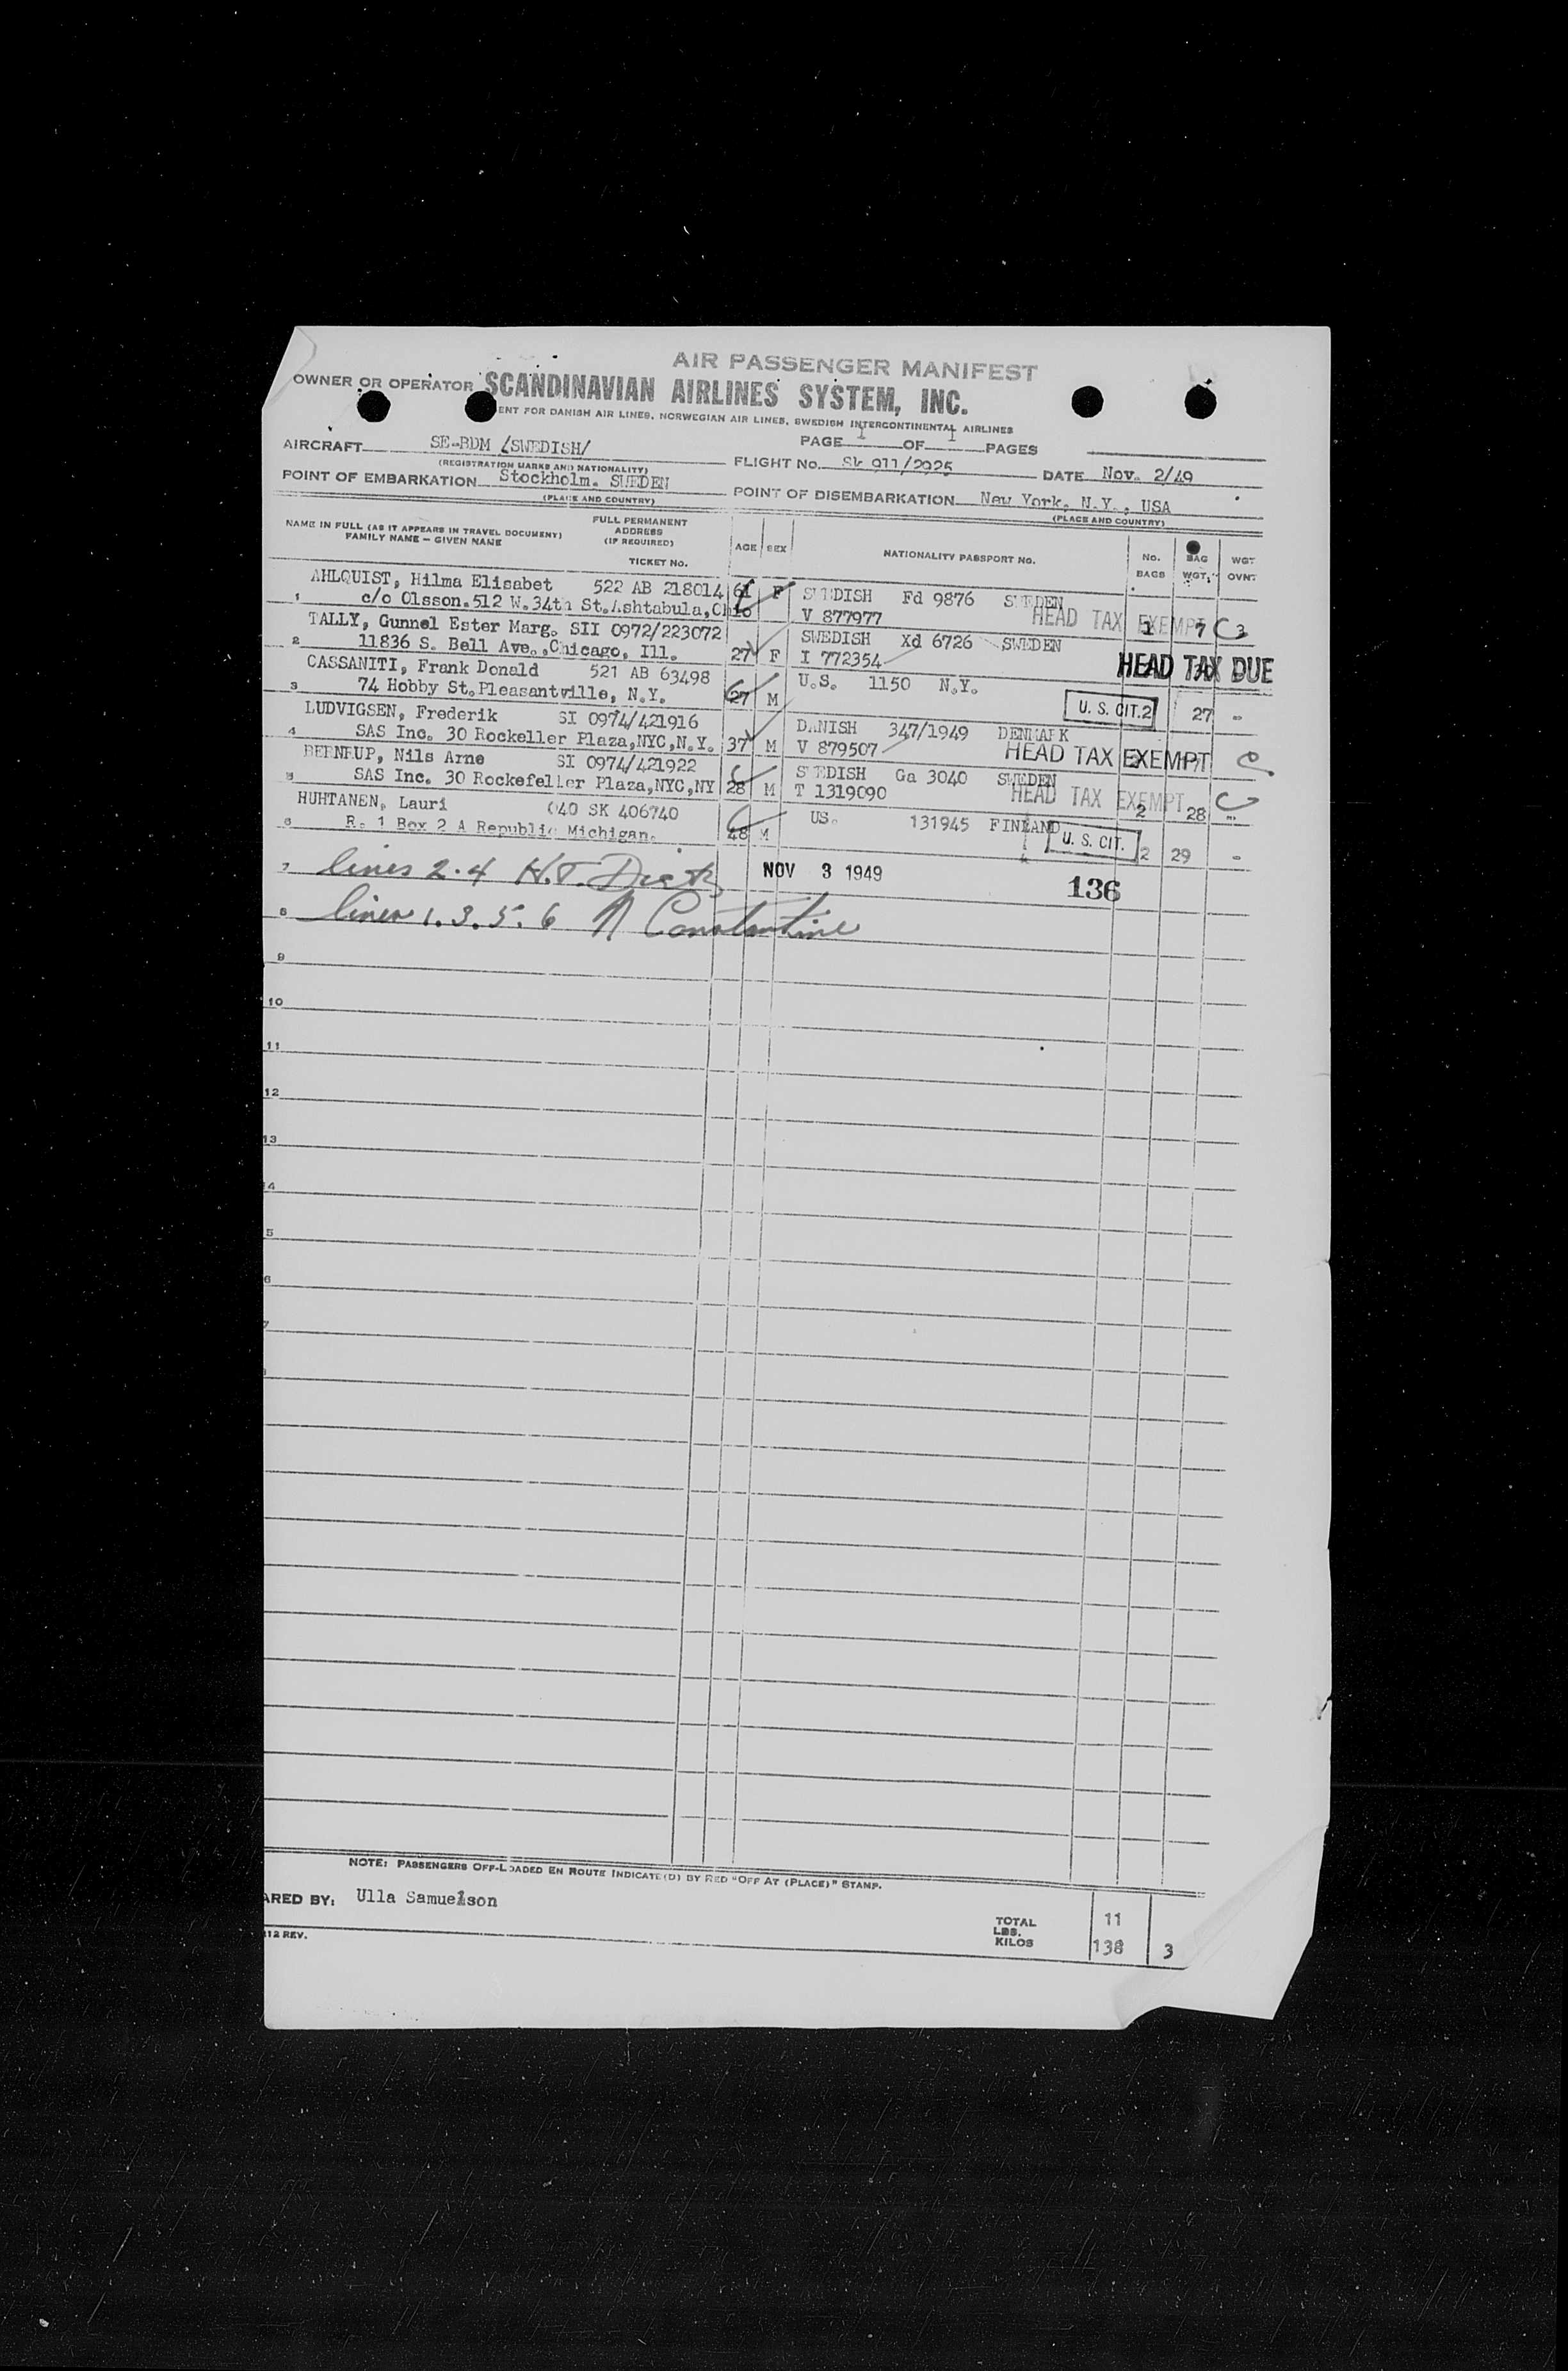 AIR PASSENGER MANIFEST
OWNER OR OPERATOR SCANDINAVIAN AIRLINES SYSTEM, INC.
ENT FOR DANISH AIR LINES, NORWEGIAN AIR LINES, SWEDISH INTERCONTINENTAL AIRLINES
PAGE 1 OF 1 PAGES
AIRCRAFT SE-BDM /SWEDISH/
(REGISTRATION MARKS AND NATIONALITY)
FLIGHT No. Sk 911/2925 DATE Nov. 2/49
POINT OF EMBARKATION Stockholm. SWEDEN
(PLACE AND COUNTRY)
POINT OF DISEMBARKATION New York, N.Y., USA
(PLACE AND COUNTRY)
NAME IN FULL (AS IT APPEARS IN TRAVEL DOCUMENT)
FAMILY NAME – GIVEN NAME
FULL PERMANENT
ADDRESS
(IF REQUIRED)
TICKET No.
AGE SEX
NATIONALITY PASSPORT NO.
No. BAGS
BAG WGT.
WGT OVWT
AHLQUIST, Hilma Elisabet 522 AB 218014 61 F SWEDISH Fd 9876 SWEDEN
1 c/o Olsson.512 W.34th St.Ashtabula,Ohio V 877977 HEAD TAX EXEMPT 3
TALLY, Gunnel Ester Marg. SII 0972/223072 SWEDISH Xd 6726 SWEDEN
2 11836 S. Bell Ave.,Chicago, Ill. 27 F I 772354 HEAD TAX DUE
CASSANITI, Frank Donald 521 AB 63498 U.S. 1150 N.Y.
3 74 Hobby St.Pleasantville, N.Y. 27 M U. S. CIT. 2 27 -
LUDVIGSEN, Frederik SI 0974/421916 DANISH 347/1949 DENMARK
4 SAS Inc. 30 Rockeller Plaza,NYC,N.Y. 37 M V 879507 HEAD TAX EXEMPT
BERNRUP, Nils Arne SI 0974/421922 SWEDISH Ga 3040 SWEDEN
5 SAS Inc. 30 Rockefeller Plaza,NYC,NY 28 M T 1319090 HEAD TAX EXEMPT 2 28
HUHTANEN, Lauri 040 SK 406740 US. 131945 FINLAND
6 R. 1 Box 2 A Republic Michigan. 48 M U. S. CIT. 2 29 -
7 lines 2.4 H.T. NOV 3 1949 136
8 lines 1.3.5.6 N Constantine
9
10
11
12
13
14
5
6
7
NOTE: PASSENGERS OFF-LOADED EN ROUTE INDICATE(D) BY RED "OFF AT (PLACE)" STAMP.
ARED BY: Ulla Samuelson
TOTAL 11
LBS.
KILOS 138 3
112 REV.